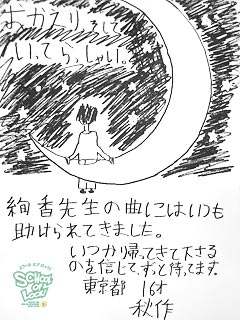 おかえり。そして
いってらっしゃい。
絢香先生の曲にはいつも
助けられてきました。
いつか帰ってきて下さる
のを信じて、ずっと待ってます。
東京都 16才
秋作
School of Lock!